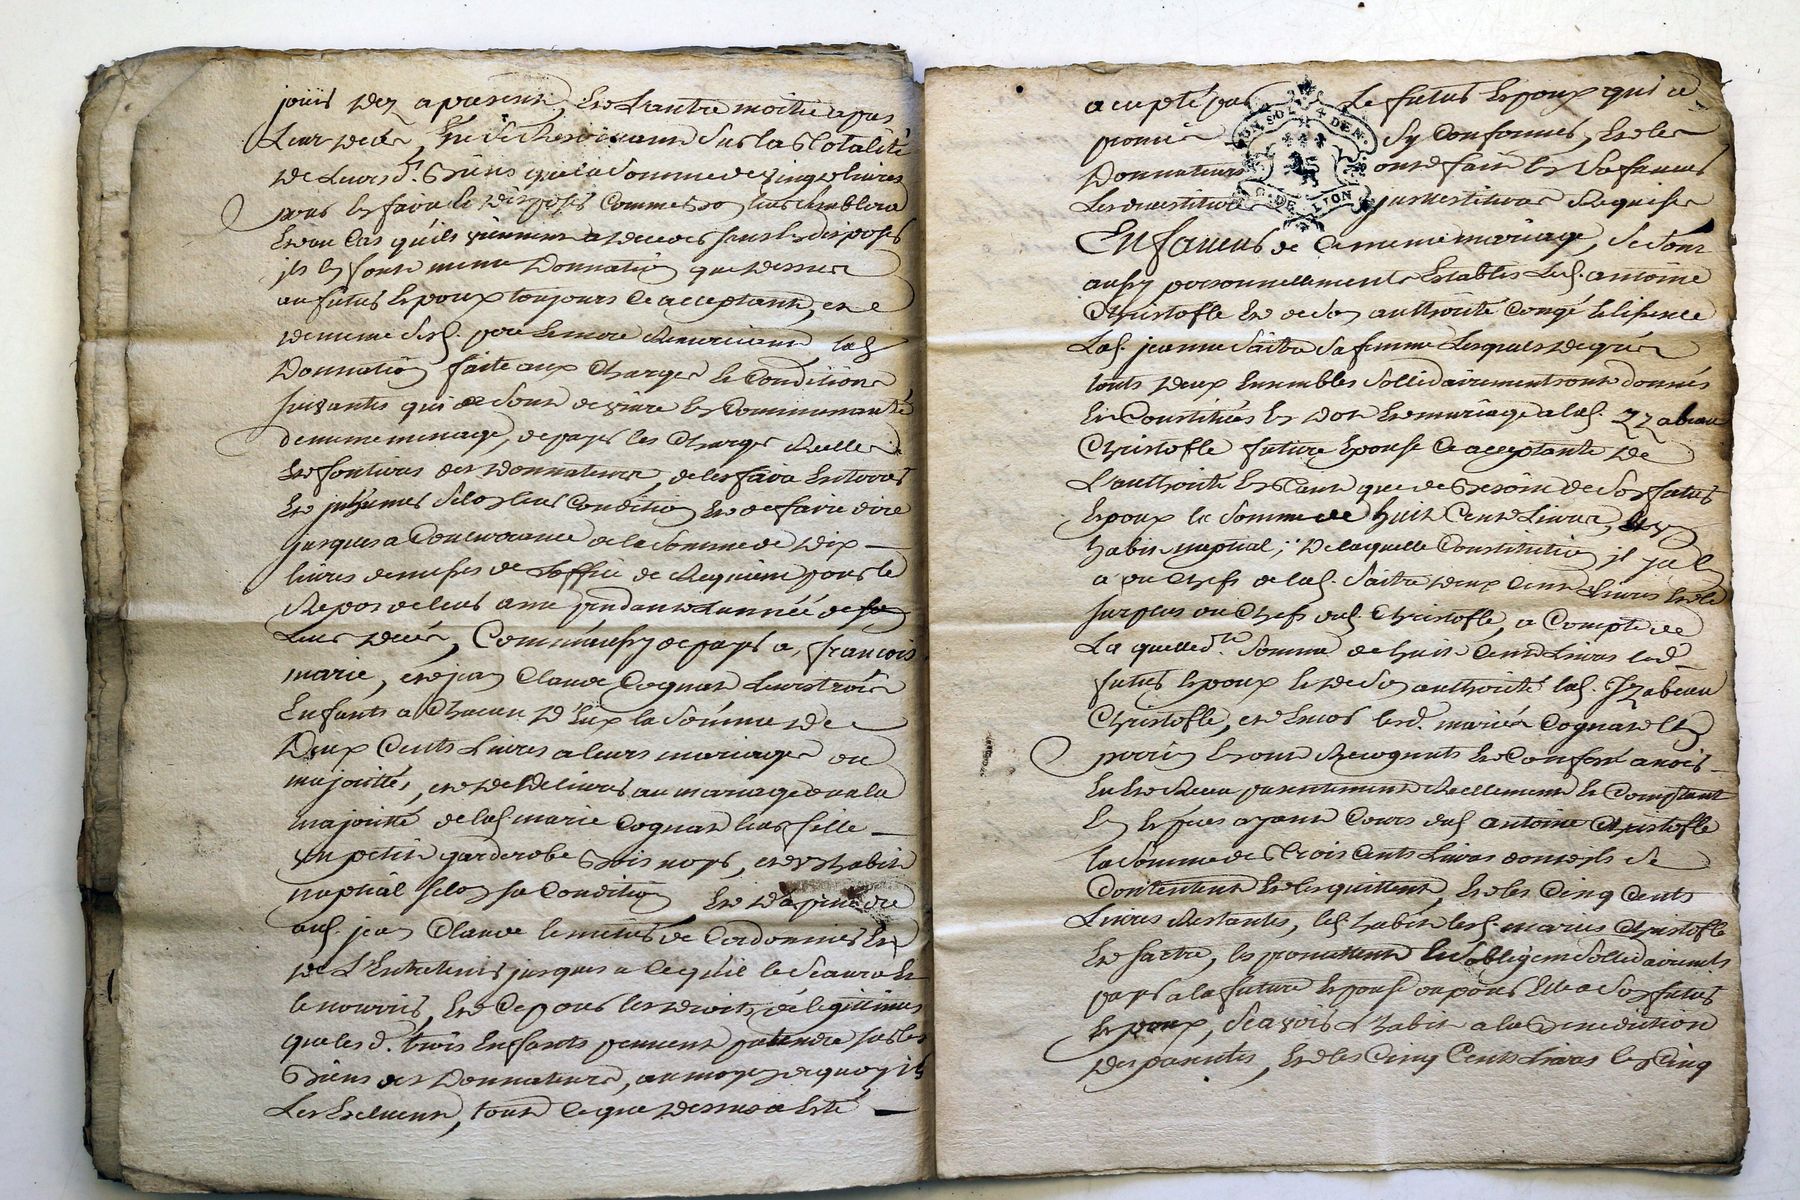 jouir dez a present, Et L'autre moitié apres
Leur deces, Et se Reservant sur la Totalité
de Leurs d. Biens que la somme de vingt livres
pour En faire Et disposer Comme bon leur semblera
Et au Cas qu'ils viennent a deceder sans En disposer
jls En font meme Donnation que dessus
au futur Epoux toujours Ce acceptant, et
de meme Lesd. pere Et mere lad.
Donnation faite aux Charges Et Conditions
suivantes qui Sont de vivre En Communauté
de meme menage, de payer les Charges Reelles
Et fontieres des Donnateurs, de les faire Enterrer
Et jnhumer Selon leur Condition Et de faire dire
jusques a Concurrance de la Somme de dix
livres de messes de L'office de Requiem pour le
Repos de leur ame pendant L'année de
Leur deces, Comm'aussy de payer a françois
marie, et jean Claude Cognat Leurs trois
Enfants a Chacun D'Eux la Somme de
Deux Cents Livres a leurs mariages ou
majorittés, et de Delivrer au mariage ou a la
majoritté de lad. marie Cognat leur fille
un petit garderobe Bois noyer, et un habit
nuptial selon sa Condition Et D'aprendre
aud. jean Claude le metier de Cordonnier Et
de L'Entretenir jusques a Ce qu'il le Scaura Et
le nourrir, Et Ce pour les droits de legitimes
que les d. trois Enfants peuvent pretendre sur les
Biens des Donnateurs, au moyen de quoy ils
Les Excluent, tout Ce que dessus a Eté
accepté par Le futur Epoux qui a
promis Sy Conformer, Et les
Donnateurs ont fait En Sa faveur
Les devestitures jnvestitures Requises
En faveur de Ce meme mariage, Se Sont
aussy personnellement Etablis Led. antoine
Christofle Et de Son authorité Congé Et lisence
Lad. jeanne Saitre Sa femme Lesquels de gré
touts deux Ensembles Sollidairement ont donnés
Et Constitués En dot Et mariage a lad. Izabeau
Christofle future Epouse Ce acceptante De
L'authorité En tant que de Besoin de Son futur
Epoux la Somme de huit Cents Livres, Et un
habit nuptial; De laquelle Constitution jl y En
a du Chefs de lad. Saitre deux Cent Livres Et le
Surplus du Chefs dud. Christofle, a Compte de
La quelle d.te Somme de huit Cents Livres led.
futur Epoux Et de Son authorité lad. Izabeau
Christofle, et Encor les d. mariés Cognat Et
perrin Ont Recognuts Et Confessé avoir
Eu Et Receu presentement Reellement Et Comptant
En Especes ayant Cours dud. antoine Christofle
la Somme de Trois Cents Livres dont ils Se
Contentent Et Les quittent, Et les Cinq Cents
Livres Restantes, led. habit lesd. mariés Christofle
Et Saitre, les promettent Et S'obligent Sollidairement
payer a la future Epouse ou pour Elle a Son futur
Epoux, Scavoir L'habit a la Benediction
des presentes, Et les Cinq Cents Livres En Cinq
UN SOL 4 DEN.
G. DE LYON